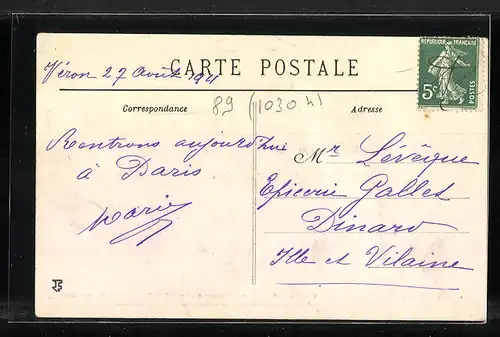 CARTE POSTALE
Véron 27 Août 191
RÉPUBLIQUE FRANÇAISE
5c
POSTES
Correspondance
89 (11030 h)
Adresse
Rentrons aujourd'hui
à Paris
Marie
Mr Lévêque
Epicerie Gallet
Dinard
Ille et Vilaine